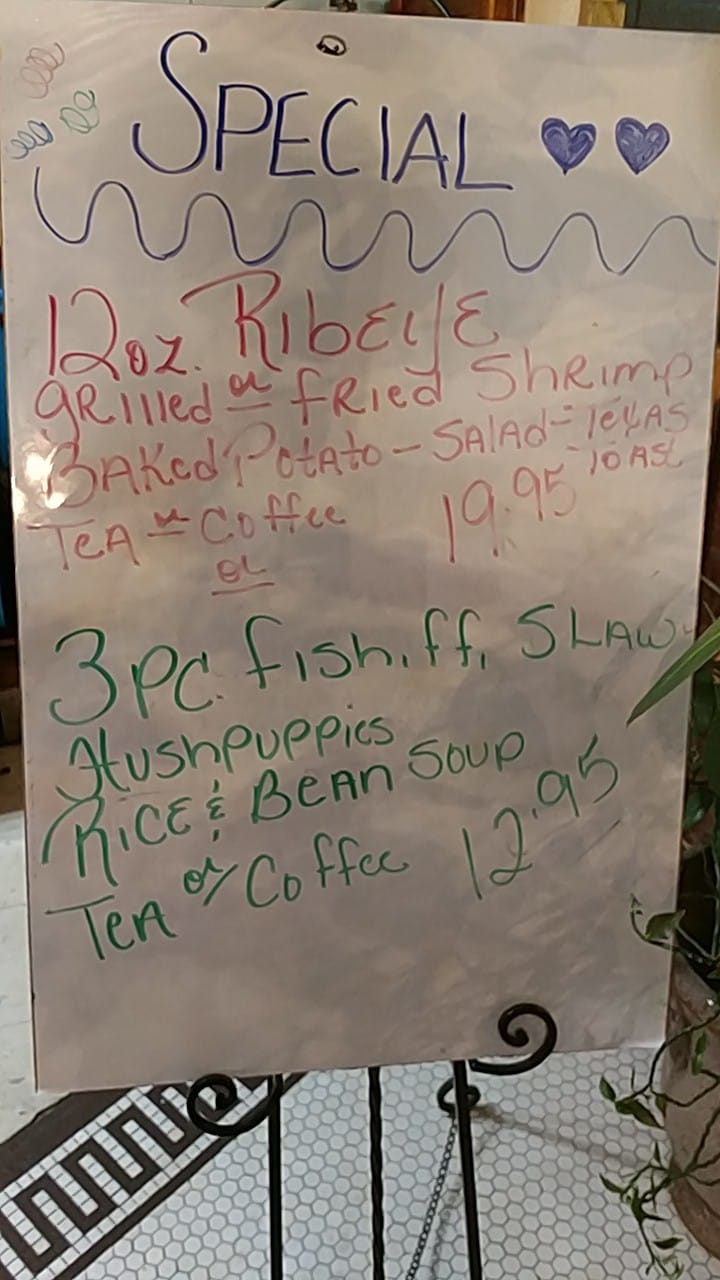 SPECIAL
12oz. RibEyE
gRilled or fRied ShRimp
BAKed Potato - SAlAd = TexAS
- TOAST
TeA or Coffee 19.95
or
3 PC. fish, ff, SLAW
Hushpuppies
RICE & BEAN SOUP
TeA or Coffee 12.95